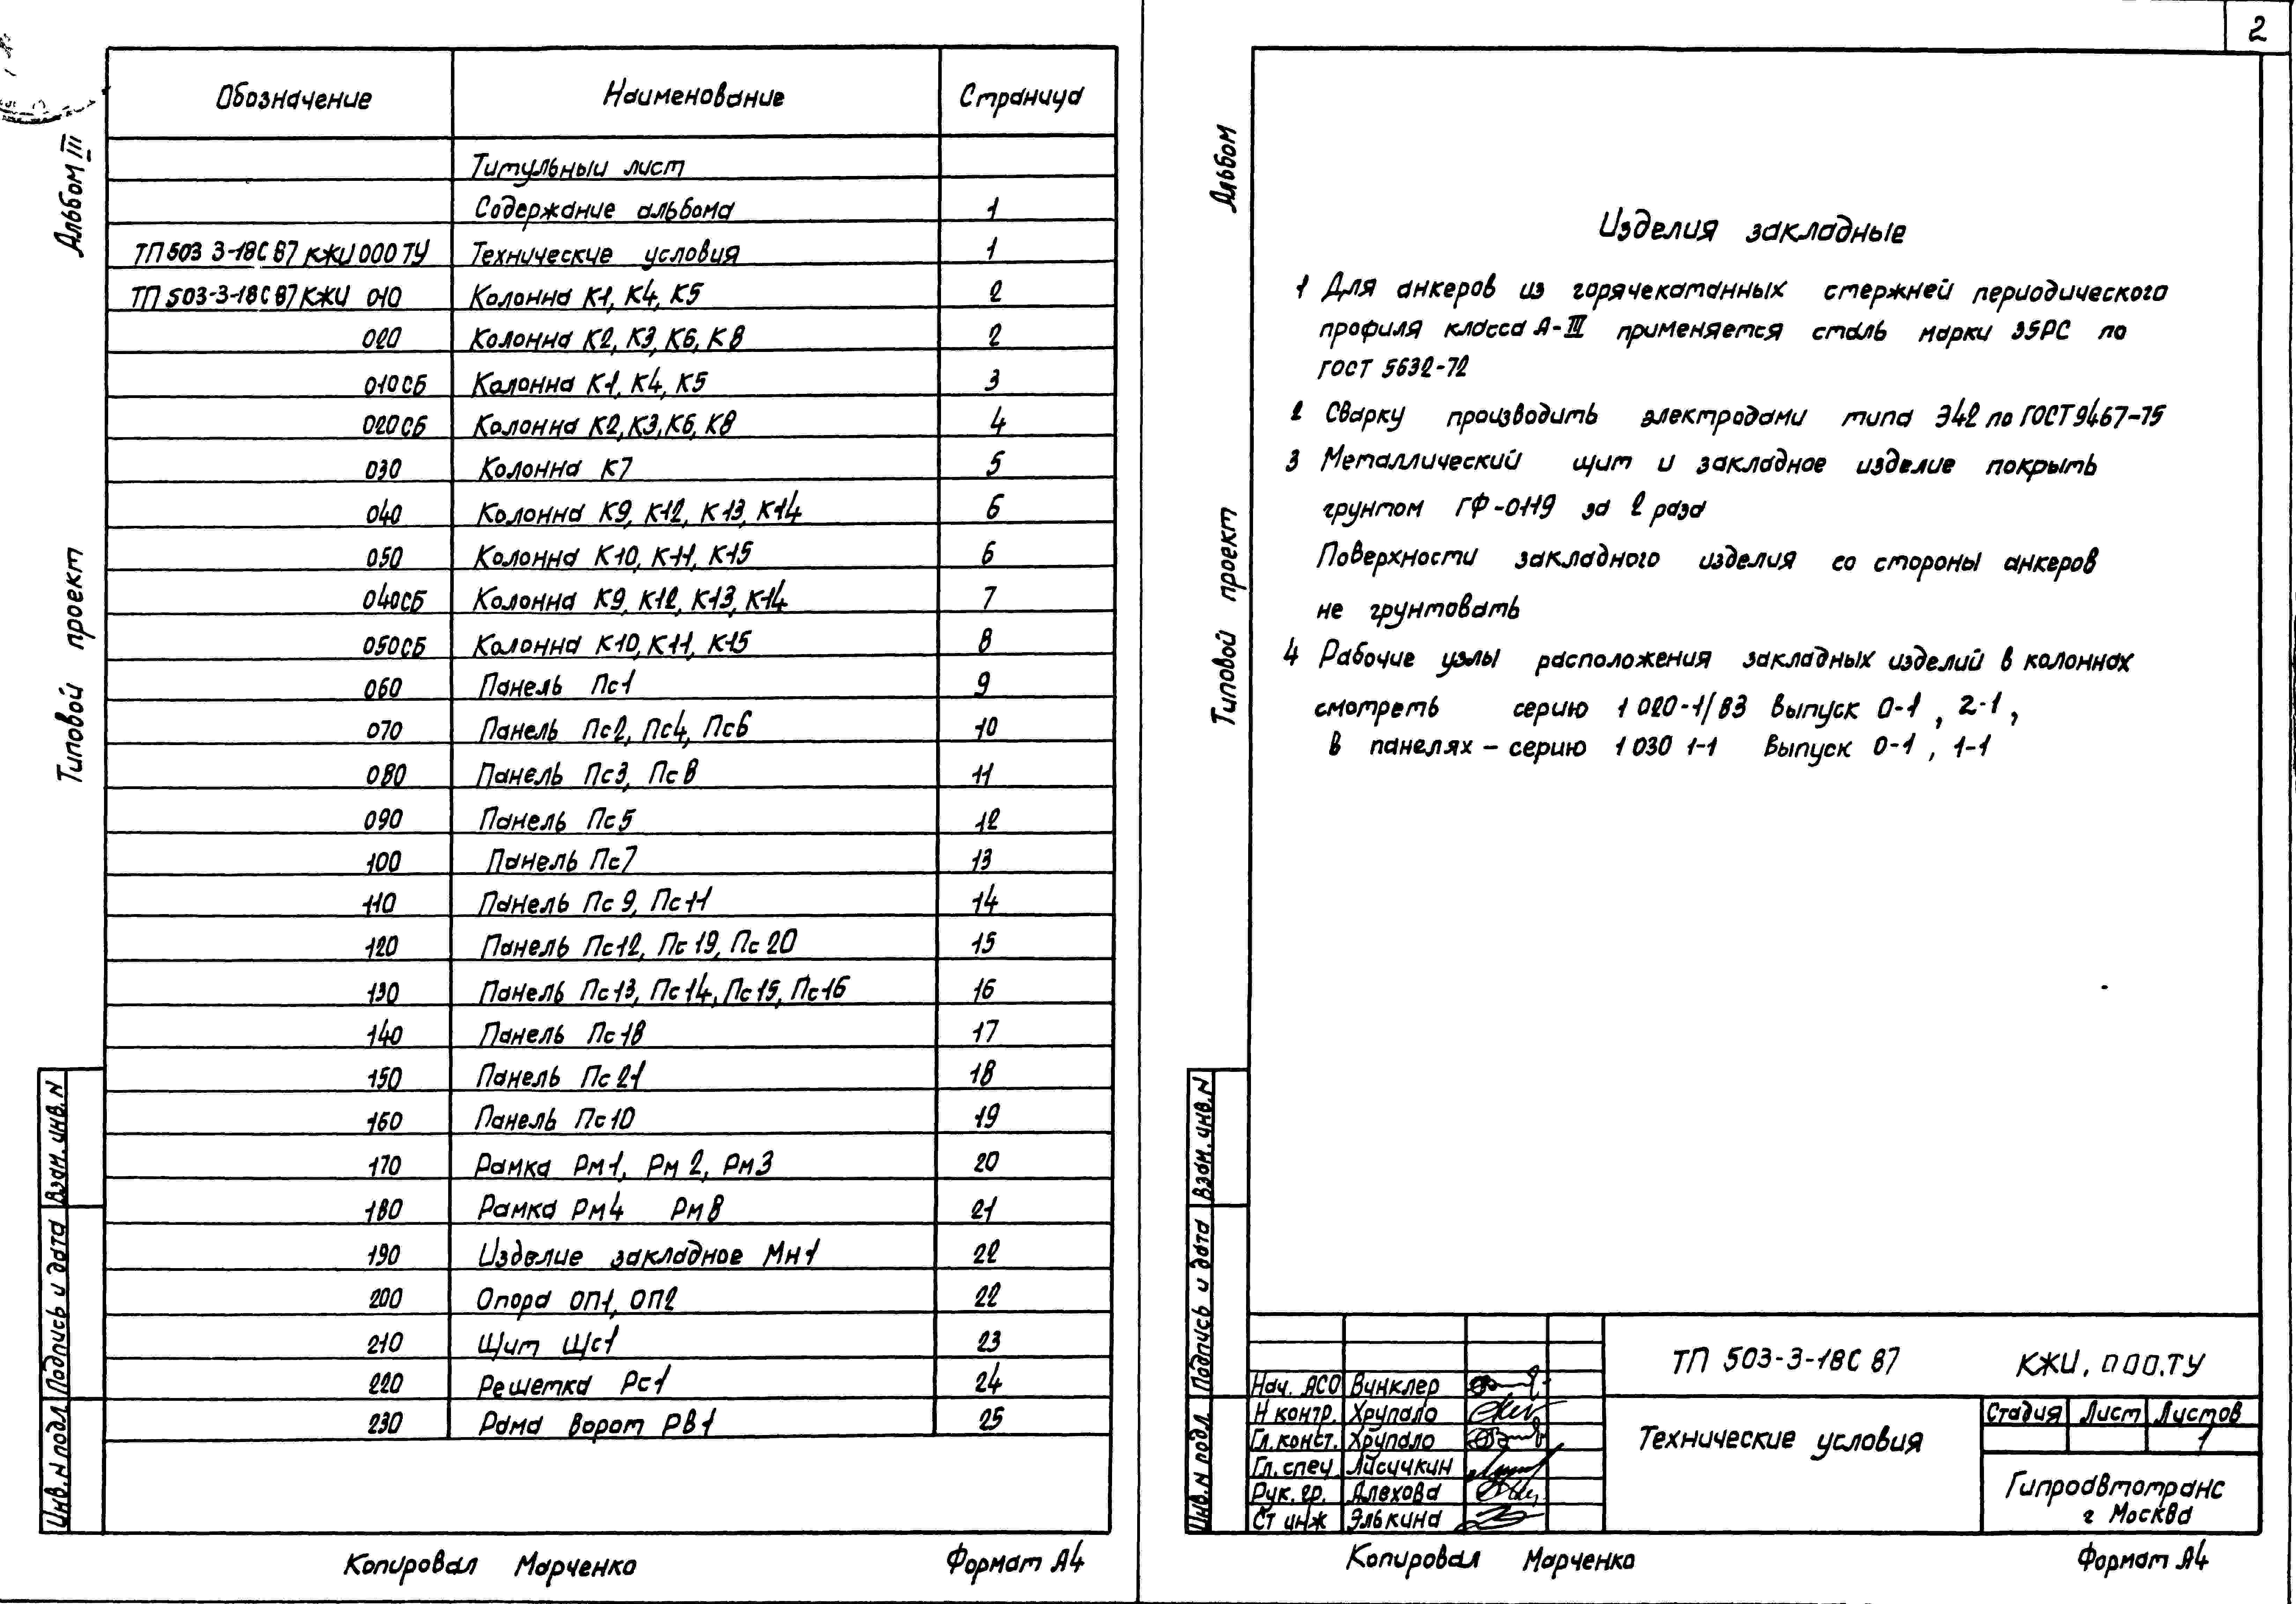 Альбом III
Типовой проект
Взам. инв. N
Подпись и дата
Инв. N подл
Обозначение Наименование Страница
Титульный лист
Содержание альбома 1
ТП 503 3-18С 87 КЖИ 000 ТУ Технические условия 1
ТП 503-3-18С 87 КЖИ 010 Колонна К1, К4, К5 2
020 Колонна К2, К3, К6, К8 2
010СБ Колонна К1, К4, К5 3
020СБ Колонна К2, К3, К6, К8 4
030 Колонна К7 5
040 Колонна К9, К12, К13, К14 6
050 Колонна К10, К11, К15 6
040СБ Колонна К9, К12, К13, К14 7
050СБ Колонна К10, К11, К15 8
060 Панель Пс1 9
070 Панель Пс2, Пс4, Пс6 10
080 Панель Пс3, Пс8 11
090 Панель Пс5 12
100 Панель Пс7 13
110 Панель Пс 9, Пс11 14
120 Панель Пс12, Пс 19, Пс 20 15
130 Панель Пс13, Пс14, Пс15, Пс16 16
140 Панель Пс18 17
150 Панель Пс 21 18
160 Панель Пс10 19
170 Рамка Рм1, Рм 2, Рм3 20
180 Рамка Рм4 Рм8 21
190 Изделие закладное Мн1 22
200 Опора ОП1, ОП2 22
210 Щит Щс1 23
220 Решетка Рс1 24
230 Рама ворот РВ1 25
Копировал Марченко Формат А4
2
Альбом
Типовой проект
Взам. инв. N
Подпись и дата
Инв. N подл.
Изделия закладные
1 Для анкеров из горячекатанных стержней периодического
профиля класса А-III применяется сталь марки 35РС по
ГОСТ 5632-72
2 Сварку производить электродами типа Э42 по ГОСТ 9467-75
3 Металлический щит и закладное изделие покрыть
грунтом ГФ-0119 за 2 раза
Поверхности закладного изделия со стороны анкеров
не грунтовать
4 Рабочие узлы расположения закладных изделий в колоннах
смотреть серию 1 020-1/83 Выпуск 0-1, 2-1,
в панелях - серию 1 030 1-1 Выпуск 0-1, 1-1
ТП 503-3-18С 87 КЖИ. 000.ТУ
Нач. АСО Винклер
Н контр. Хрупало
Гл. конст. Хрупало
Гл. спец. Лисичкин
Рук. гр. Алехова
Ст инж Элькина
Технические условия
Стадия Лист Листов
1
Гипроавтотранс
г Москва
Копировал Марченко Формат А4